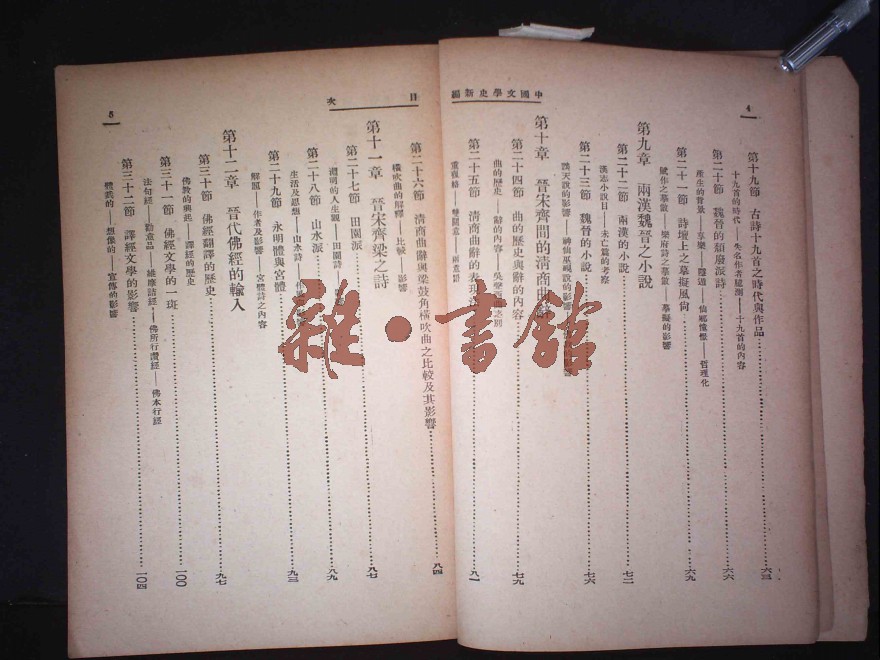 中國文學史新編
4
第十九節 古詩十九首之時代與作品……六三
十九首的時代——失名作者臆測——十九首的內容
第二十節 魏晉的頹廢派詩……六六
產生的背景——享樂——隱逸——仙鄉憧憬——哲理化
第二十一節 詩壇上之摹擬風尚……六九
賦作之摹擬——樂府詩之摹擬——摹擬的影響
第九章 兩漢魏晉之小說
第二十二節 兩漢的小說……七二
漢志小說目——未亡篇的考察
第二十三節 魏晉的小說……七六
談天說的影響——神仙巫覡說的影響
第十章 晉宋齊間的清商曲辭
第二十四節 曲的歷史與辭的內容……七九
曲的歷史——辭的內容——吳聲
第二十五節 清商曲辭的表現……八一
雙關意——兩意
目次
5
第二十六節 清商曲辭與梁鼓角橫吹曲之比較及其影響……八四
橫吹曲的解釋——比較——影響
第十一章 晉宋齊梁之詩
第二十七節 田園派……八七
淵明的人生觀——田園詩
第二十八節 山水派……八九
生活及思想——山水詩
第二十九節 永明體與宮體……九三
解題——作者及影響——宮體詩之內容
第十二章 晉代佛經的輸入
第三十節 佛經翻譯的歷史……九七
佛教的興起——譯經的歷史
第三十一節 佛經文學的一斑……一〇〇
法句經——維摩詰經——佛所行讚經——佛本行經
第三十二節 譯經文學的影響……一〇四
體裁的——想像的——宣傳的影響
雜·書館